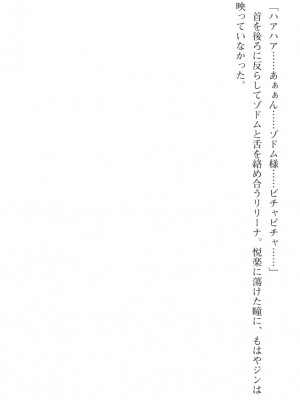 「ハアハア……あぁぁん……ゾドム様……ピチャピチャ……」
　首を後ろに反らしてゾドムと舌を絡め合うリリーナ。悦楽に蕩けた瞳に、もはやジンは
映っていなかった。